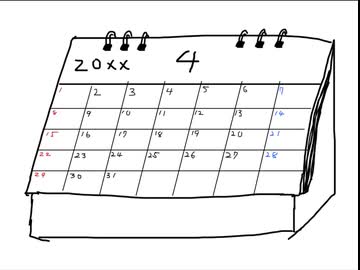 20xx 4
1 2 3 4 5 6 7
8 9 10 11 12 13 14
15 16 17 18 19 20 21
22 23 24 25 26 27 28
29 30 31